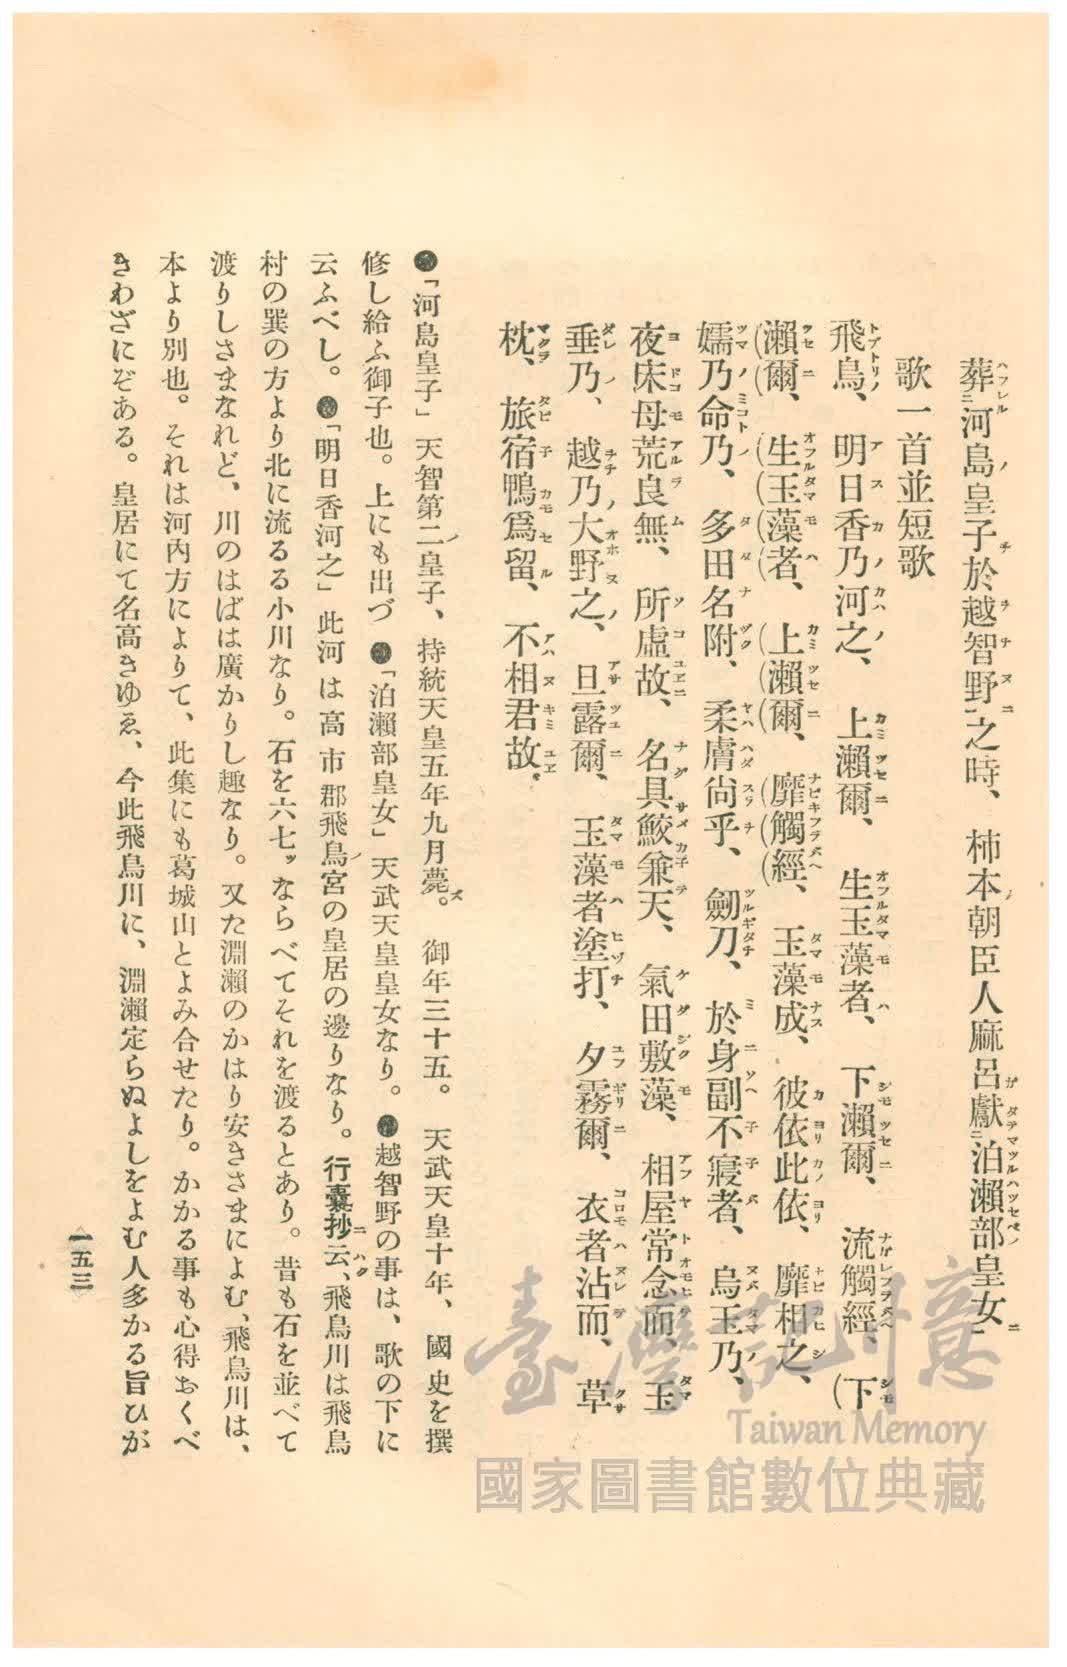 葬河島皇子於越智野之時、柿本朝臣人麻呂獻泊瀬部皇女
歌一首並短歌
飛鳥、明日香乃河之、上瀬爾、生玉藻者、下瀬爾、流觸經、(下
(瀬(爾、(生(玉(藻(者、(上(瀬(爾、(靡(觸(經、玉藻成、彼依此依、靡相之、
嬬乃命乃、多田名附、柔膚尚乎、劔刀、於身副不寢者、烏玉乃、
夜床母荒良無、所虛故、名具鮫兼天、氣田敷藻、相屋常念而、玉
垂乃、越乃大野之、旦露爾、玉藻者塗打、夕霧爾、衣者沾而、草
枕、旅宿鴨爲留、不相君故。
●「河島皇子」天智第二皇子、持統天皇五年九月薨。御年三十五。天武天皇十年、國史を撰
修し給ふ御子也。上にも出づ●「泊瀬部皇女」天武天皇皇女なり。●越智野の事は、歌の下に
云ふべし。●「明日香河之」此河は高市郡飛鳥宮の皇居の邊りなり。行嚢抄云、飛鳥川は飛鳥
村の巽の方より北に流るる小川なり。石を六七ッならべてそれを渡るとあり。昔も石を並べて
渡りしさまなれど、川のはばは廣かりし趣なり。又た淵瀬のかはり安きさまによむ、飛鳥川は、
本より別也。それは河内方によりて、此集にも葛城山とよみ合せたり。かかる事も心得おくべ
きわざにぞある。皇居にて名高きゆゑ、今此飛鳥川に、淵瀬定らぬよしをよむ人多かる旨ひが
一五三
臺灣記憶
Taiwan Memory
國家圖書館數位典藏